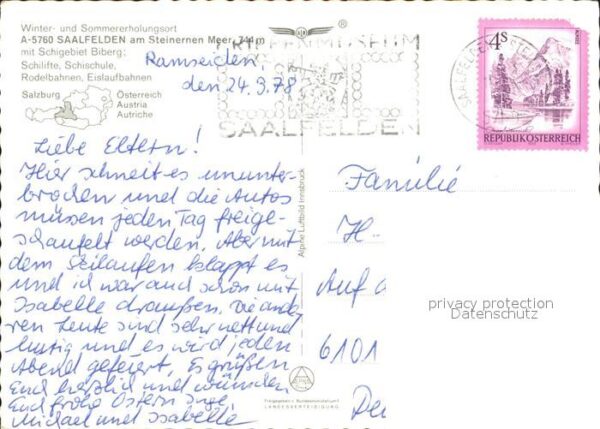 Winter- und Sommererholungsort
A-5760 SAALFELDEN am Steinernen Meer, 744 m
mit Schigebiet Biberg:
Schilifte, Schischule,
Rodelbahnen, Eislaufbahnen
Salzburg
Österreich
Austria
Autriche
®
KRIPPENMUSEUM
SAALFELDEN
SAALFELDEN
4s
REPUBLIK ÖSTERREICH
Ramseiden,
den 24.3.78
Liebe Eltern!
Hier schneit es ununter-
brochen und die Autos
müssen jeden Tag freige-
schaufelt werden. Aber mit
dem Skilaufen klappt es
und ich war auch schon mit
Isabelle draußen. Die ande-
ren Leute sind sehr nett und
lustig und es wird jeden
Abend gefeiert. Es grüßen
Euch herzlich und wünschen
Euch frohe Ostern
Michael und Isabelle
Alpine Luftbild Innsbruck
Freigegeben v. Bundesministerium f.
LANDESVERTEIDIGUNG
Familie
H.
Auf d
6101
privacy protection
Datenschutz